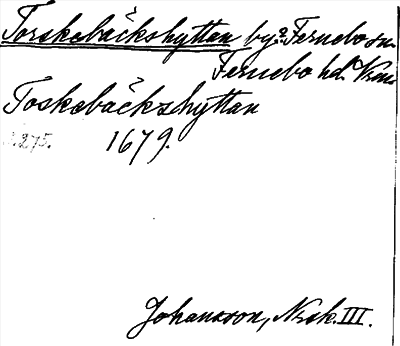 Torskebäckshyttan by? Fernebo sn.
Fernebo hd. Vrml.
Toskebäckzhyttan
s. 275. 1679.
Johansson, Norsk. III.